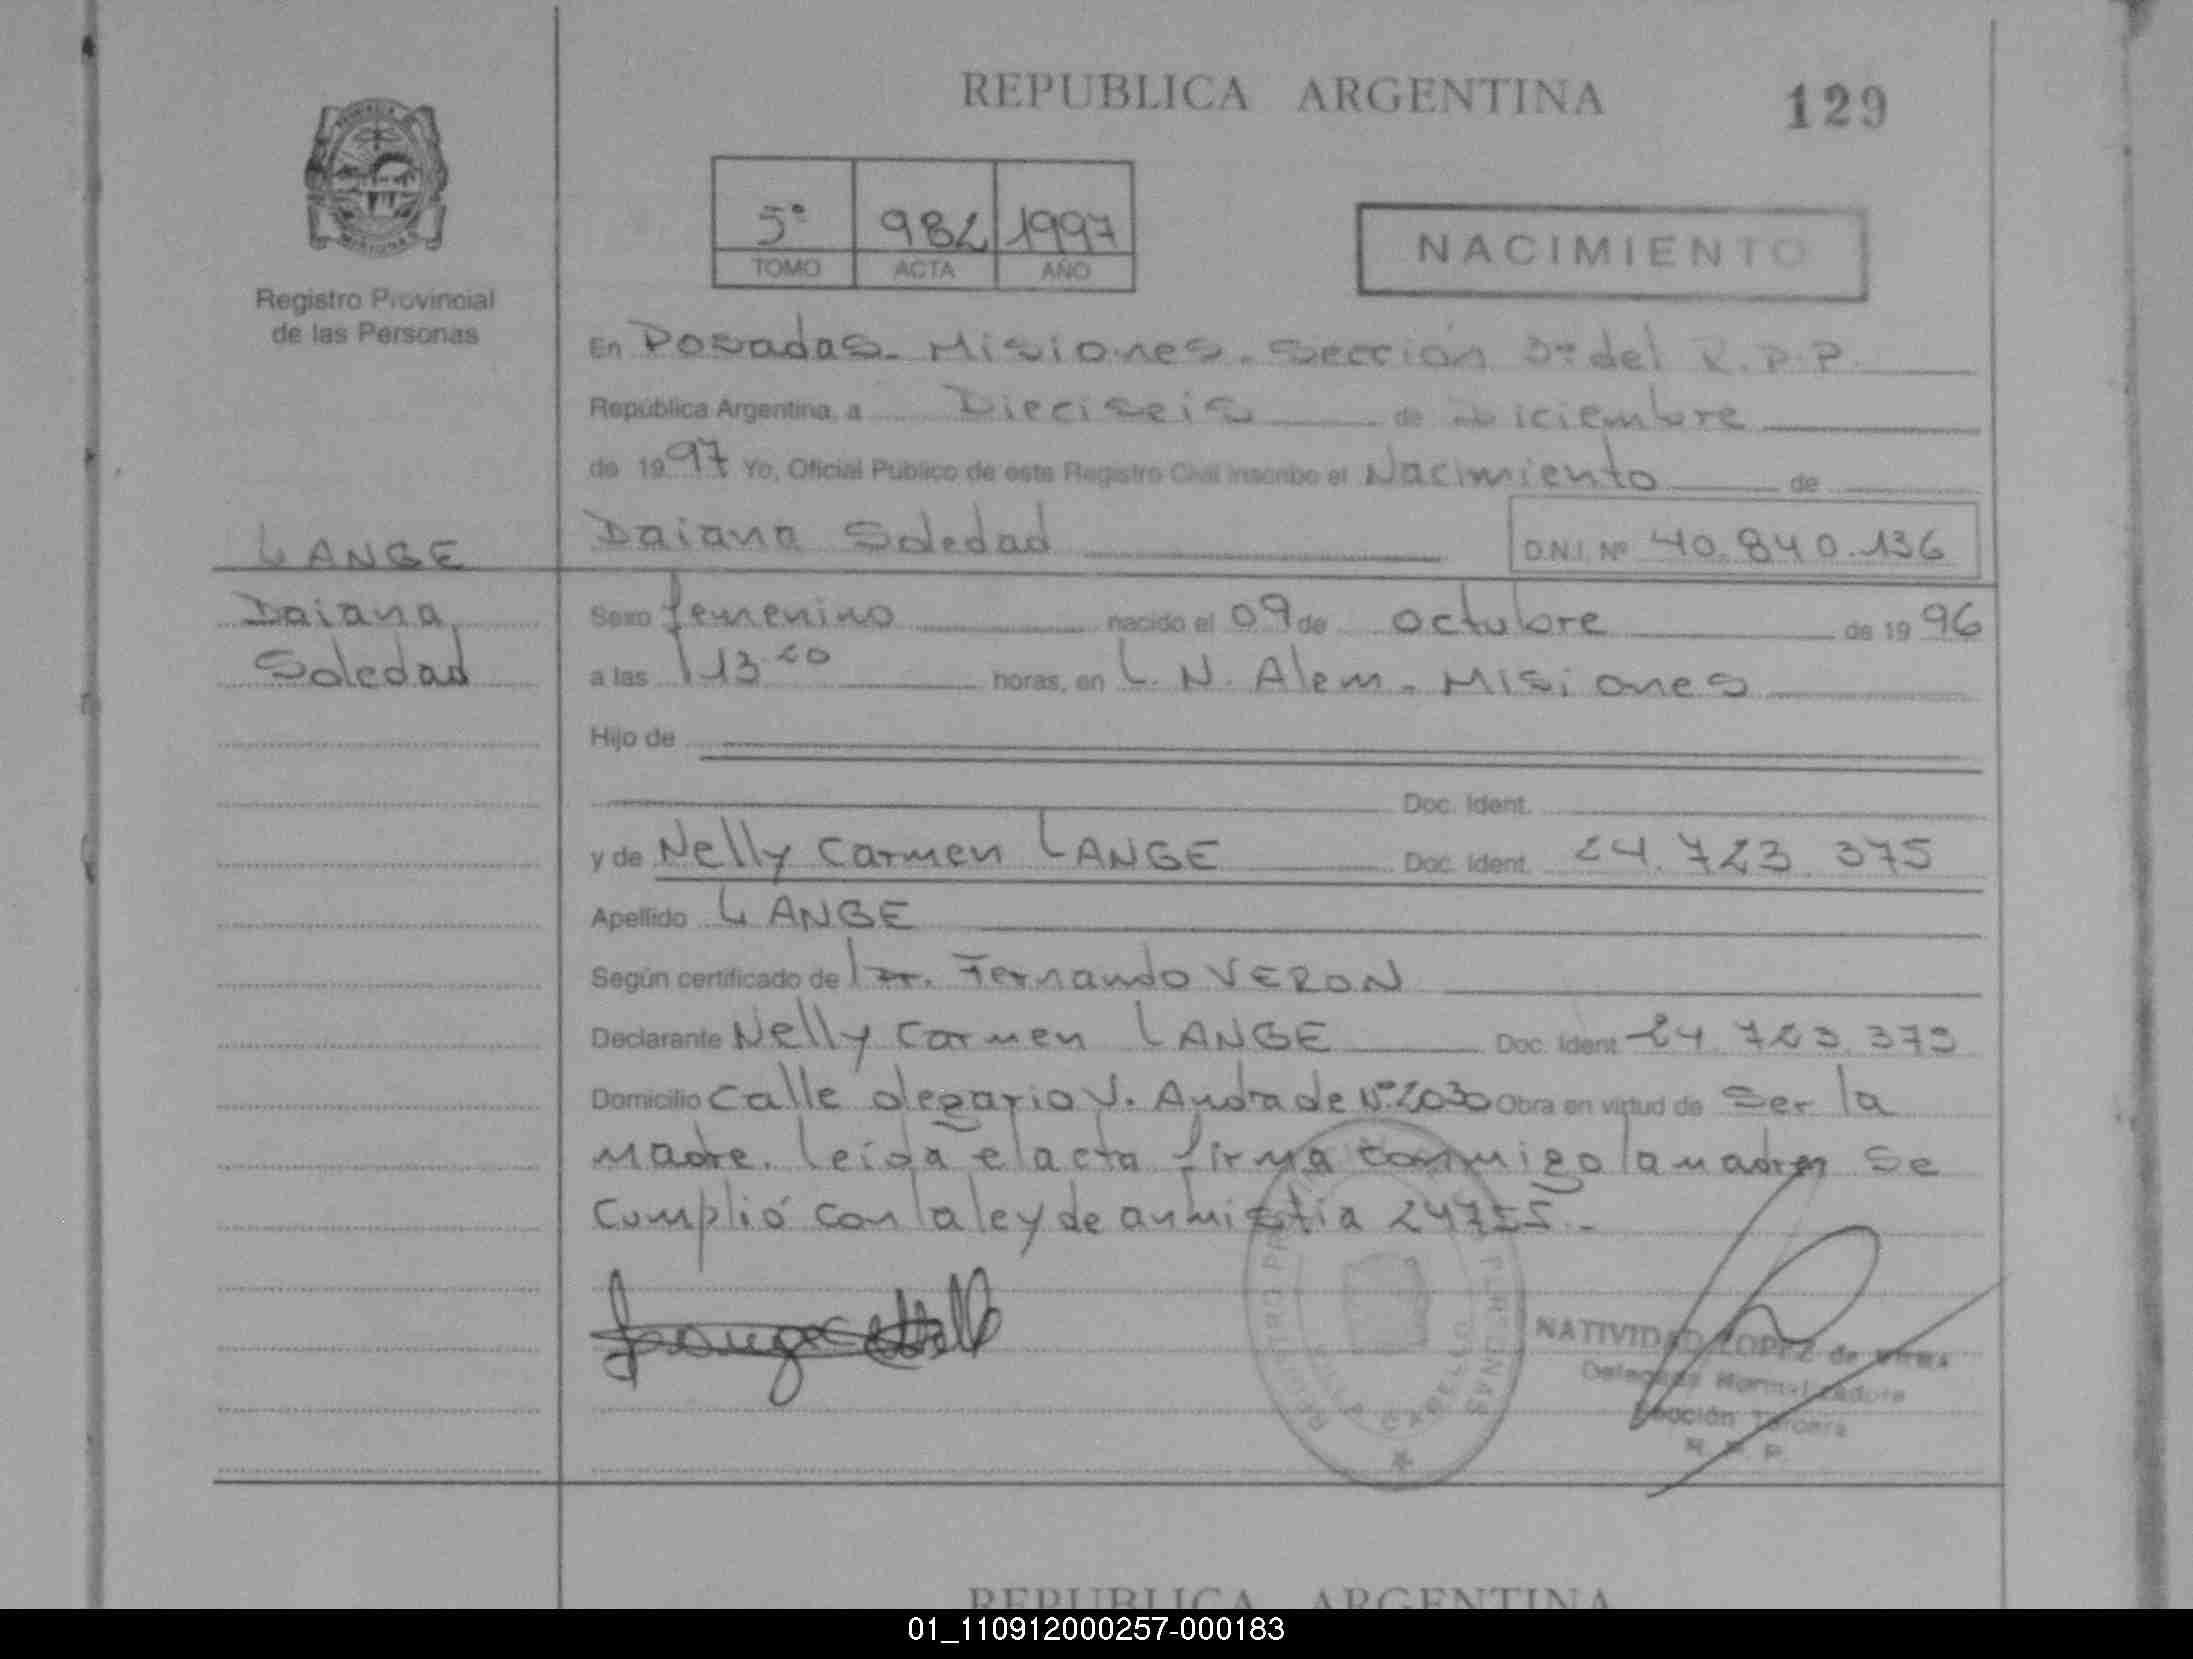 REPUBLICA ARGENTINA
129
5º 982 1997
TOMO ACTA AÑO
NACIMIENTO
PROVINCIA DE MISIONES
Registro Provincial
de las Personas
En Posadas - Misiones. Sección 3ª del R.P.P.
República Argentina, a Dieciseis de Diciembre
de 1997 Yo, Oficial Público de este Registro Civil inscribo el Nacimiento de
LANGE
Daiana Soledad
D.N.I. Nº 40.840.136
Daiana
Soledad
Sexo femenino nacido el 09 de octubre de 1996
a las 13.20 horas, en L. N. Alem - Misiones
Hijo de
Doc. Ident.
y de Nelly Carmen LANGE Doc. Ident. 24.723.375
Apellido LANGE
Según certificado de Dr. Fernando VERON
Declarante Nelly Carmen LANGE Doc. Ident 24.723.375
Domicilio Calle Olegario V. Andrade Nº 2030 Obra en virtud de Ser la
madre. Leída el acta firma conmigo la madre Se
Cumplió con la ley de anmistia 24755.-
NATIVIDAD LOPEZ de
Delegada Normalizadora
Sección Tercera
R. P. P.
REPUBLICA ARGENTINA
01_110912000257-000183